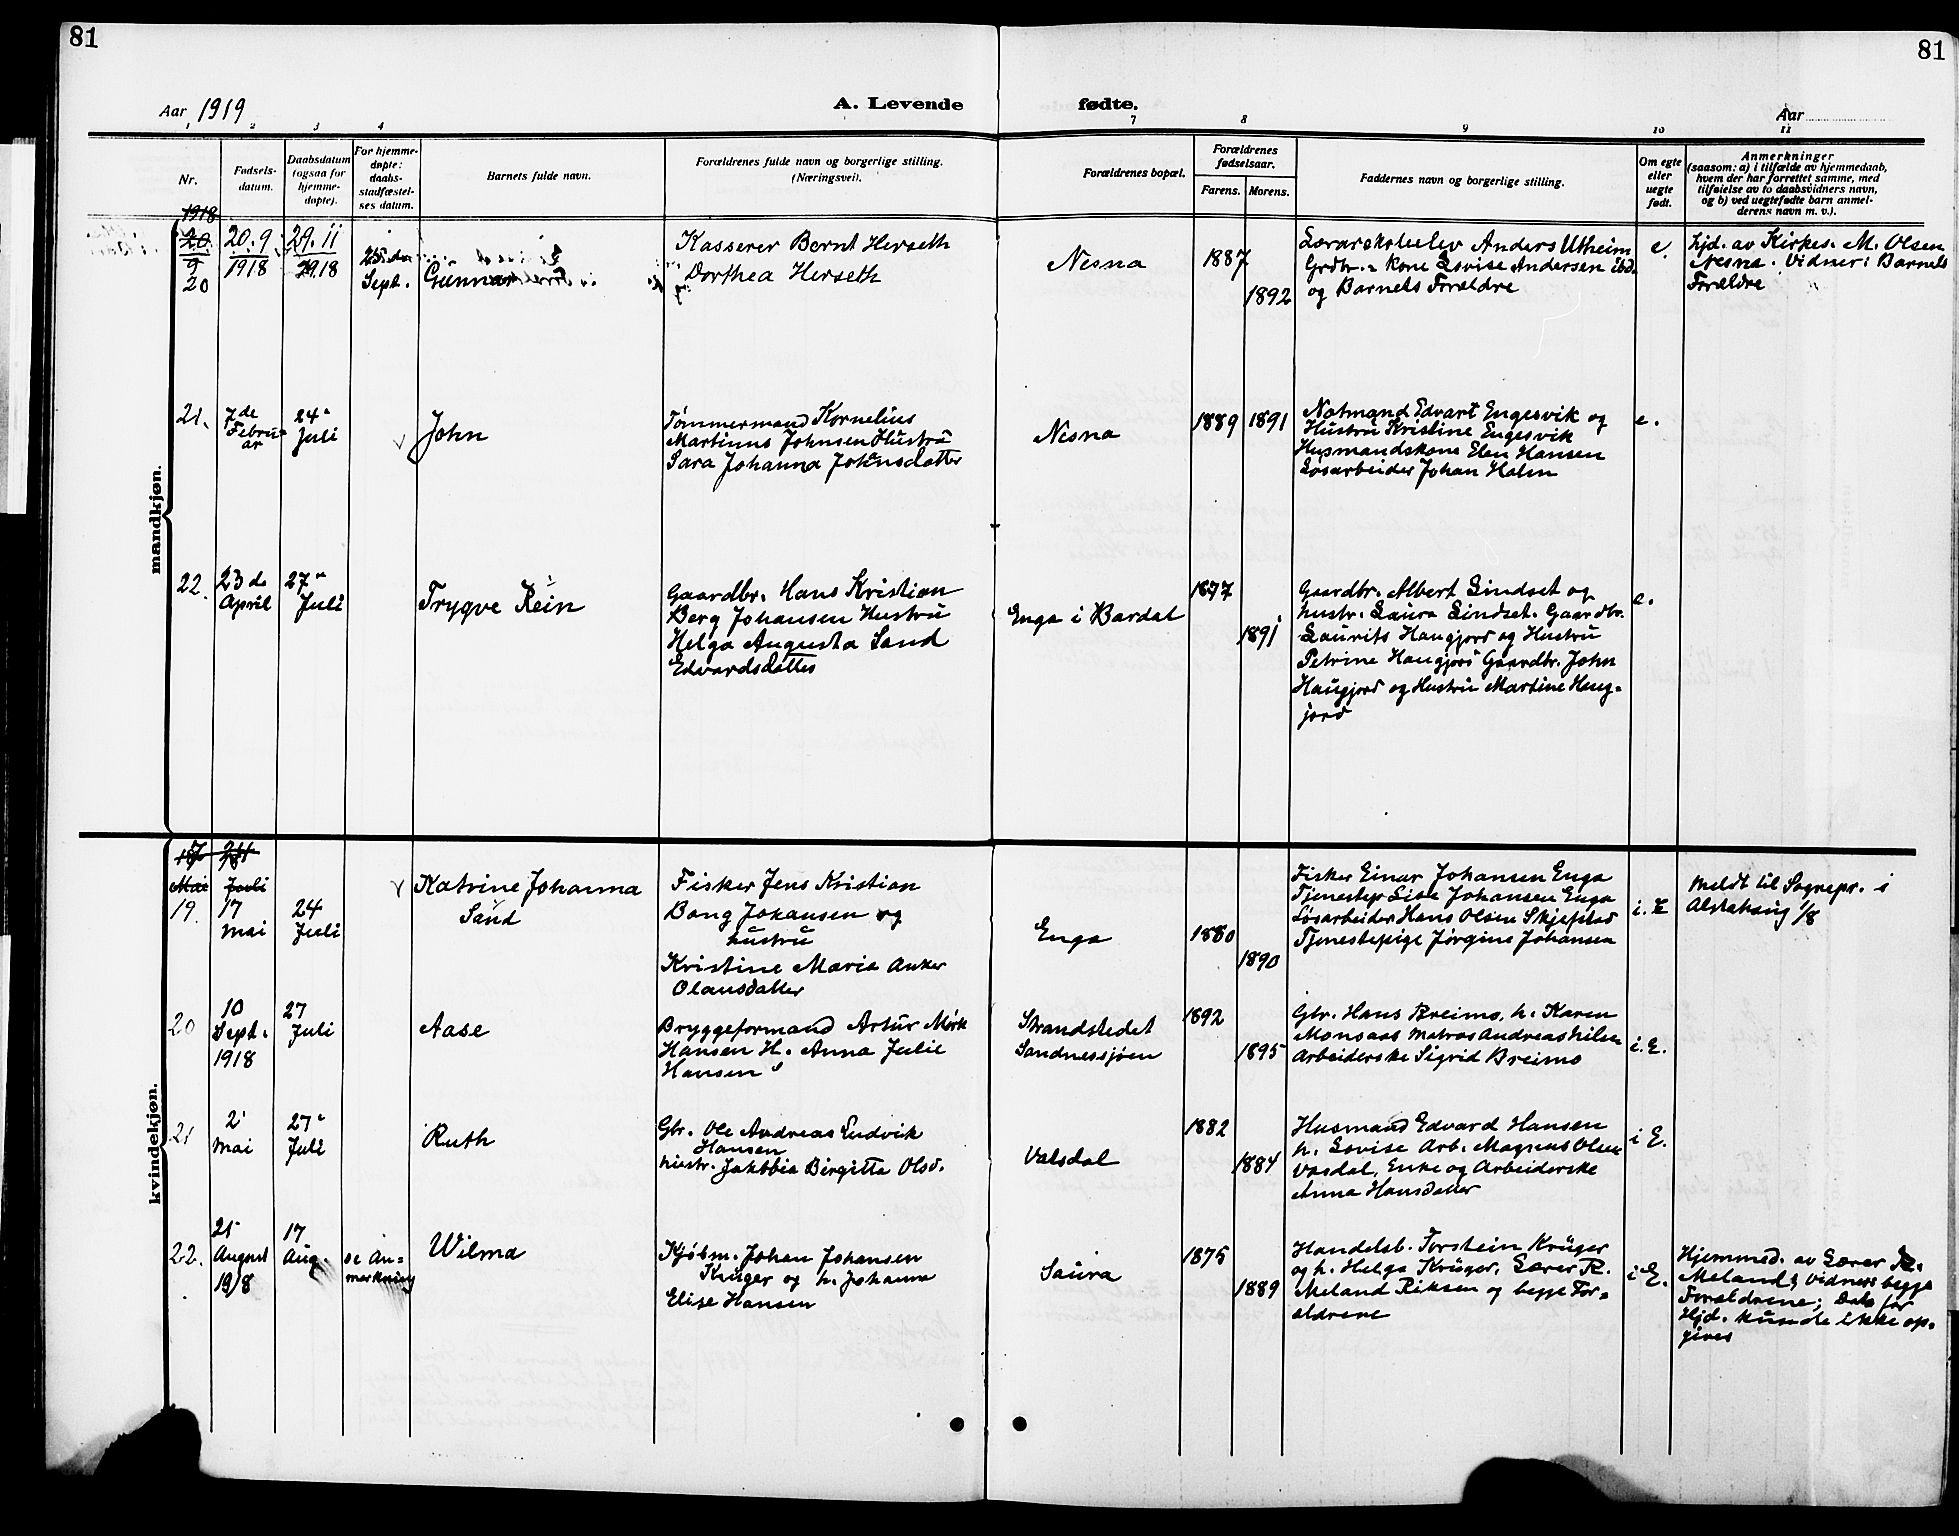 81
81
Aar 1919
A. Levende
fødte.
Aar
1 2 3 4 7 8 9 10 11
Nr.
Fødsels-
datum.
Daabsdatum
(ogsaa for
hjemme-
døpte).
For hjemme-
døpte:
daabs-
stadfæstel-
ses datum.
Barnets fulde navn.
Forældrenes fulde navn og borgerlige stilling.
(Næringsvei).
Forældrenes bopæl.
Forældrenes
fødselsaar.
Farens. Morens.
Faddernes navn og borgerlige stilling.
Om egte
eller
uegte
født.
Anmerkninger
(saasom: a) i tilfælde av hjemmedaab,
hvem der har forrettet samme, med
tilføielse av to daabsvidners navn,
og b) ved uegtefødte barn anmel-
derens navn m. v.).
mandkjøn.
1918
20
9
20
20.9
1918
29.11
18
25de
Sept.
Gunnar
Kasserer Bernt Herseth
Dorthea Herseth
Nesna
1887
1892
Lærerskoleelev Anders Utheim
Grdbr.s kone Lovise Andersen ibd.
og Barnets Forældre
e.
Hjd. av Kirkes. M. Olsen
Nesna. Vidner: Barnets
Forældre
21.
7de
Febru-
ar
24
Juli
John
Tømmermand Kornelius
Martinus Johnsen Hustru
Sara Johanna Johnsdatter
Nesna
1889
1891
Notmand Edvart Engesvik og
Hustru Kristine Engesvik
Husmandskone Elen Hansen
Løsarbeider Johan Holm
e.
22.
23de
April
27
Juli
Trygve Rein
Gaardbr. Hans Kristian
Berg Johansen Hustru
Helga Augusta Sand
Edvardsdatter
Enga i Bardal
1877
1891
Gaardbr. Albert Lindset og
hustr. Laura Lindset. Gaardbr.
Laurits Haugjord og Hustru
Petrine Haugjord Gaardbr. John
Haugjord og Hustru Martine Haug-
jord
e.
kvindekjøn.
Mai
Juli
19.
17
Mai
24
Juli
Katrine Johanna
Sand
Fisker Jens Kristian
Bang Johansen og
hustru
Kristine Marie Anker
Olausdatter
Enga
1880
1890
Fisker Einar Johansen Enga
Tjenestep. Lise Johansen Enga
Løsarbeider Hans Olsen Skjefstad
Tjenestepige Jørgine Johansen
i. E
Meldt til Sognepr. i
Alstahaug 1/8
20
10
Sept.
1918
27
Juli
Aase
Bryggeformand Artur Mørk
Hansen H. Anna Julie
Hansen
Strandstedet
Sandnessjøen
1892
1895
Gbr. Hans Breimo, h. Karen
Monsaas Matros Andreas Nilsen
Arbeiderske Sigrid Breimo
i. E.
21
2
Mai
27
Juli
Ruth
Gbr. Ole Andreas Ludvik
Hansen
hustr. Jakobbia Birgitta Olsd.
Valsdal
1882
1884
Husmand Edvard Hansen
h. Lovise Arb. Magnus Olsen
Vasdal, Enke og Arbeiderske
Anna Hansdatter
i E.
22.
25
August
1918
17
Aug.
se An-
merkning
Wilma
Kjøbm. Johan Johansen
Krüger og h. Johanna
Elise Hansen
Saura
1875
1889
Handelsb. Torstein Krüger
og h. Helga Krüger, Lærer R.
Meland Riksen og begge For-
ældrene
i E.
Hjemmed. av Lærer R.
Meland; Vidner: begge
Forældrene; Dato for
Hjd. kunde ikke op-
gives